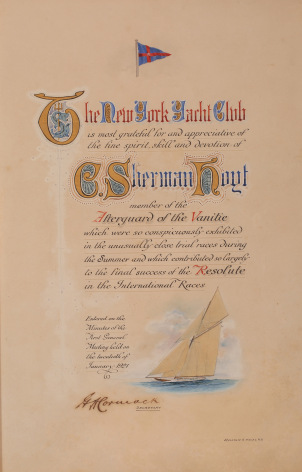 The New York Yacht Club
is most grateful for and appreciative of
the fine spirit, skill and devotion of
C. Sherman Hoyt
member of the
Afterguard of the Vanitie
which were so conspicuously exhibited
in the unusually close trial races during
the Summer and which contributed so largely
to the final success of the Resolute
in the International Races.
Entered on the
Minutes of the
First General
Meeting held on
the twentieth of
January 1921
Secretary